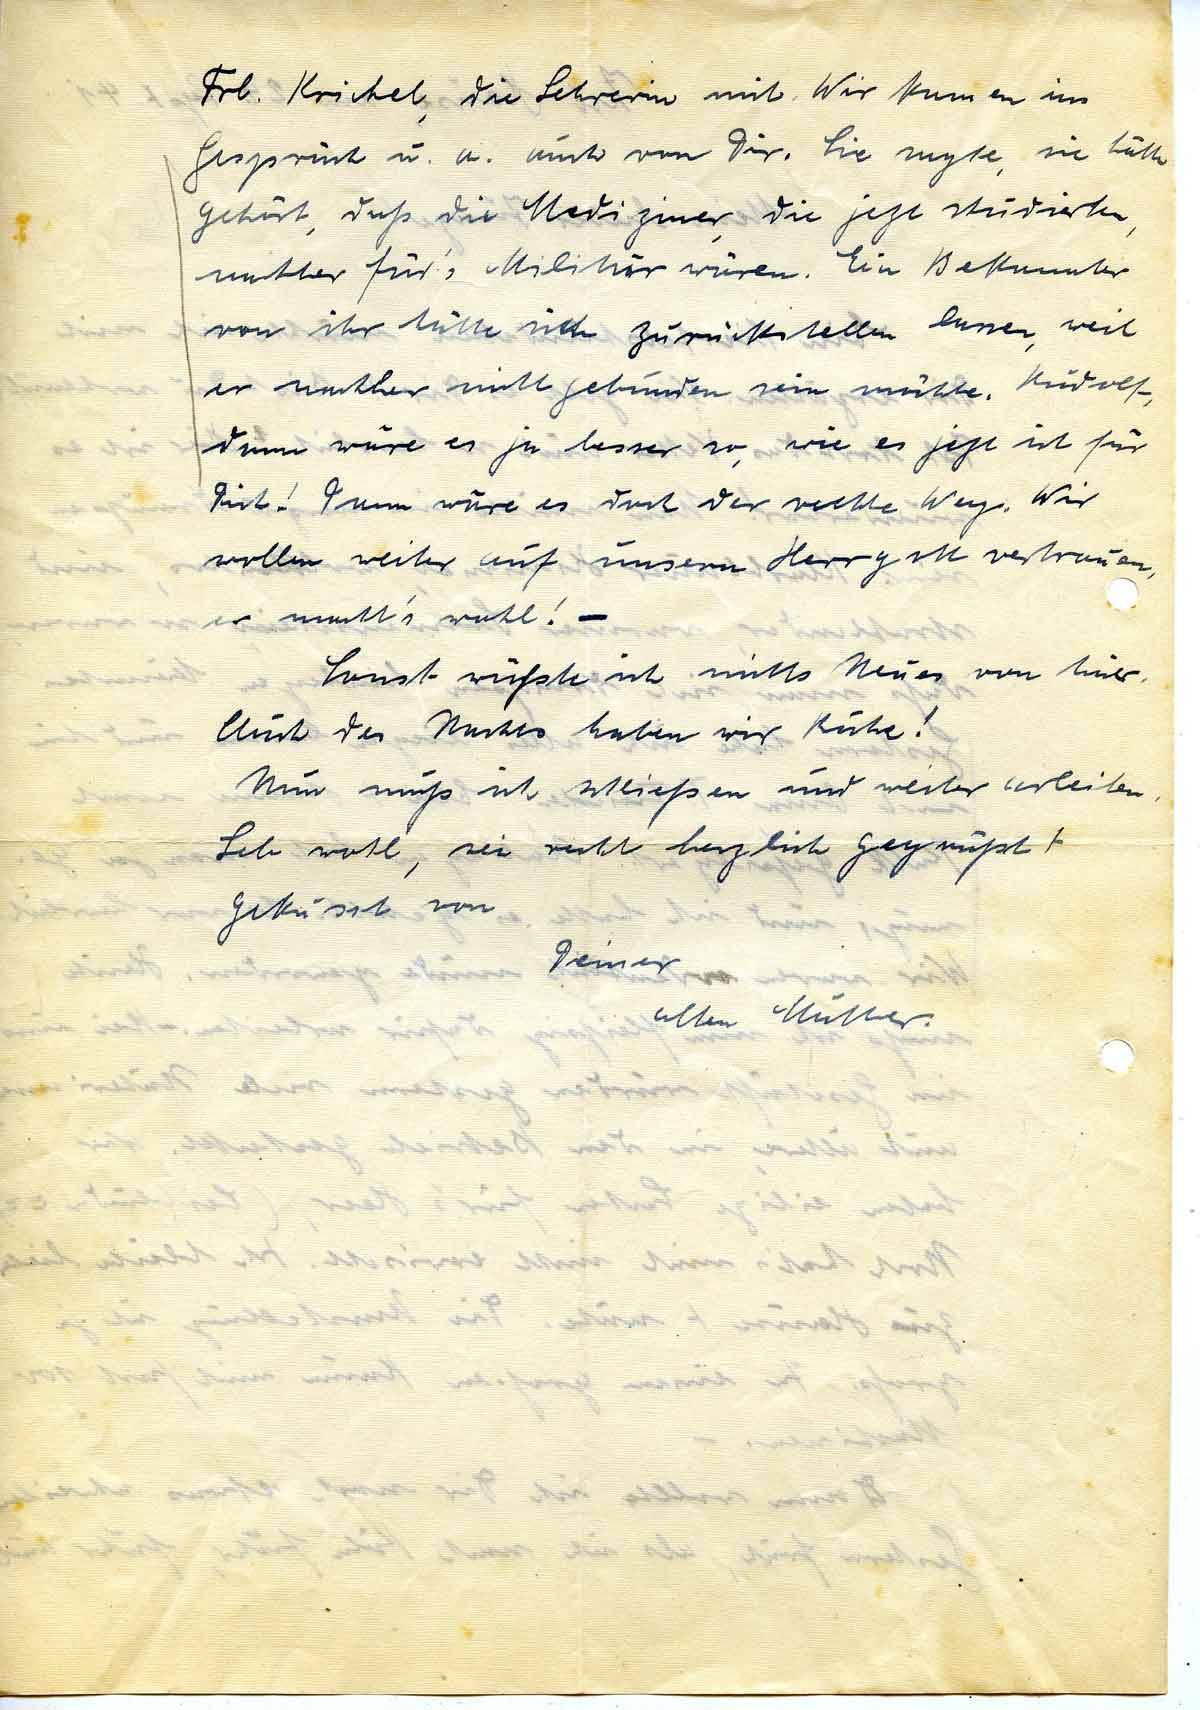 Frl. Krickel, die Lehrerin mit. Wir kamen ins
Gespräch u. a. auch von Dir. Sie sagte, sie hätte
gehört, daß die Mediziner, die jetzt studierten,
nachher für's Militär wären. Ein Bekannter
von ihr hätte sich zurückstellen lassen, weil
er nachher nicht gebunden sein möchte. Rudolf,
dann wäre es ja besser so, wie es jetzt ist für
Dich! Dann wäre es doch der rechte Weg. Wir
wollen weiter auf unsern Herrgott vertrauen,
er macht's wohl! –
Sonst wüßte ich nichts Neues von hier.
Auch des Nachts haben wir Ruhe!
Nun muß ich schließen und weiter arbeiten.
Leb wohl, sei recht herzlich gegrüßt +
geküsst von
Deiner
alten Mutter.